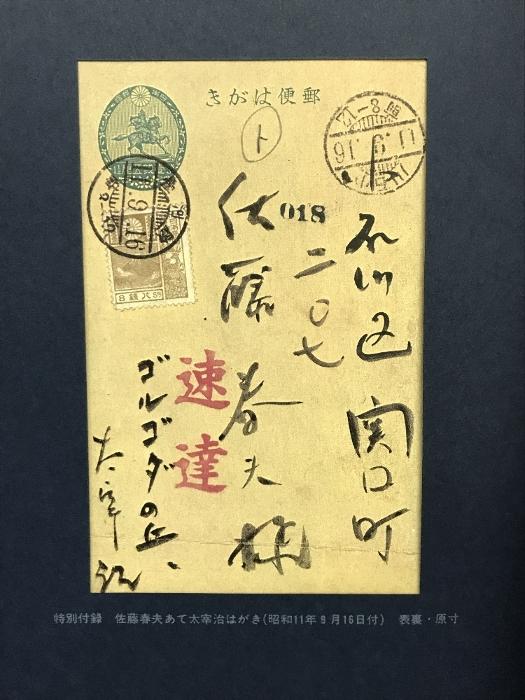 郵便はがき
ト
11.9.16
前8-12
石川区 関口町
二〇七
018
佐藤春夫様
速達
ゴルゴダの丘、
太宰治
11.9.16
特別付録 佐藤春夫あて太宰治はがき(昭和11年9月16日付) 表裏・原寸